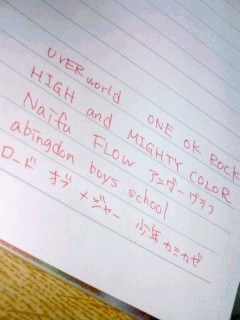 UVERworld ONE OK ROCK
HIGH and MIGHTY COLOR
Naifu FLOW アンダーグラフ
abingdon boys school
ロード オブ メジャー 少年カミカゼ